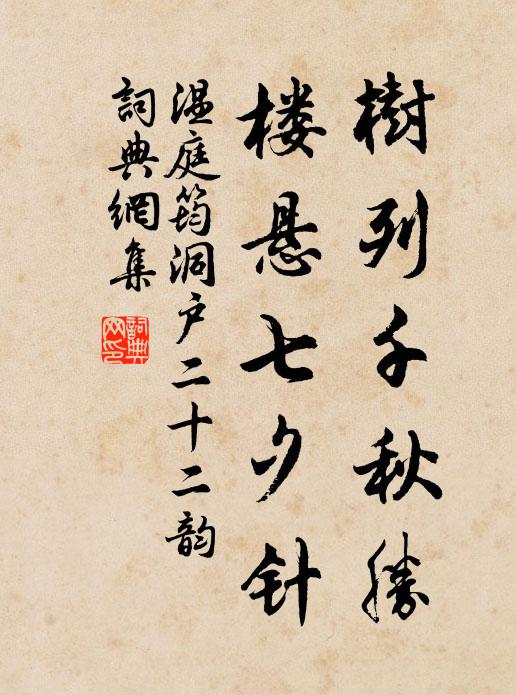 樹列千秋勝
楼悬七夕针
温庭筠洞户二十二韵
詞典網集
詞典网印